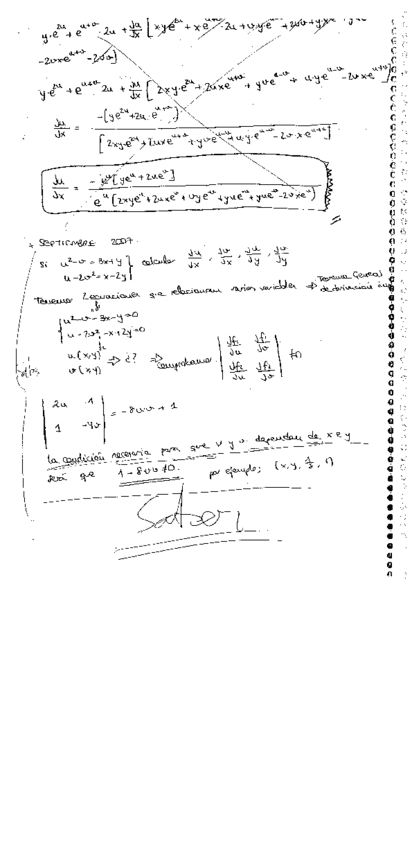 y·e^{2u} + e^{u+v}·2u + \frac{du}{dx} [ xye^{2u} + xe^{u+v}·2u + v·ye^{u+v} + 2uv + yxe
-2vxe^{u+v} - 2vv]
y·e^{2u} + e^{u+v}·2u + \frac{du}{dx} [ 2xy·e^{2u} + 2uxe^{u+v} + yve^{u-v} + u·ye^{u-v} - 2vxe^{u+v}
\frac{du}{dx} = \frac{-(ye^{2u}+2u·e^{u+v})}{[2xy·e^{2u}+2uxe^{u+v}+yve^{u-u}+u·y·e^{u-v}-2v·xe^{u+v}]}
\frac{du}{dx} = \frac{-e^{u}[ye^{u}+2ue^{v}]}{e^{u}(2xye^{u}+2uxe^{v}+vye^{v}+yue^{v}+yue^{v}-2vxe^{v})}
+ SEPTIEMBRE 2007.
Si u²-v = 3x+y
u-2v² = x-2y } calcular \frac{du}{dx}, \frac{dv}{dx}, \frac{du}{dy}, \frac{dv}{dy}
Tenemos 2 ecuaciones que relacionan varias variables ⇒ Teorema General
de derivación
{ u²-v-3x-y=0
u-2v²-x+2y=0
u(x,y)
v(x,y) ⇒ ¿? ⇒ Comprobamos | \frac{df_1}{du} \frac{df_1}{dv} \frac{df_2}{du} \frac{df_2}{dv} | ≠0
| 2u 1
1 -4v | = -8uv + 1
la condición necesaria para que u y v dependan de x e y
será que 1-8uv≠0. por ejemplo; (x,y,